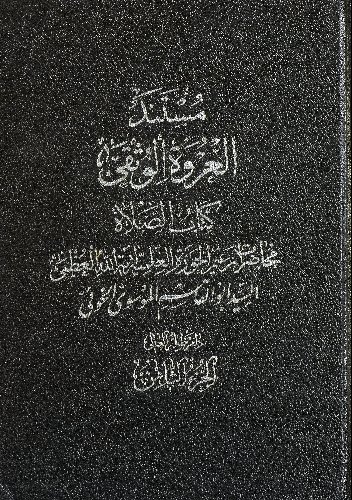 مُسْتَنَد
العُروَة الوُثقىٰ
كتاب الصلاة
محاضرات زعيم الحوزة العلمية آية الله العظمى
السيد ابوالقاسم الموسوي الخوئي
الجزء الثامن